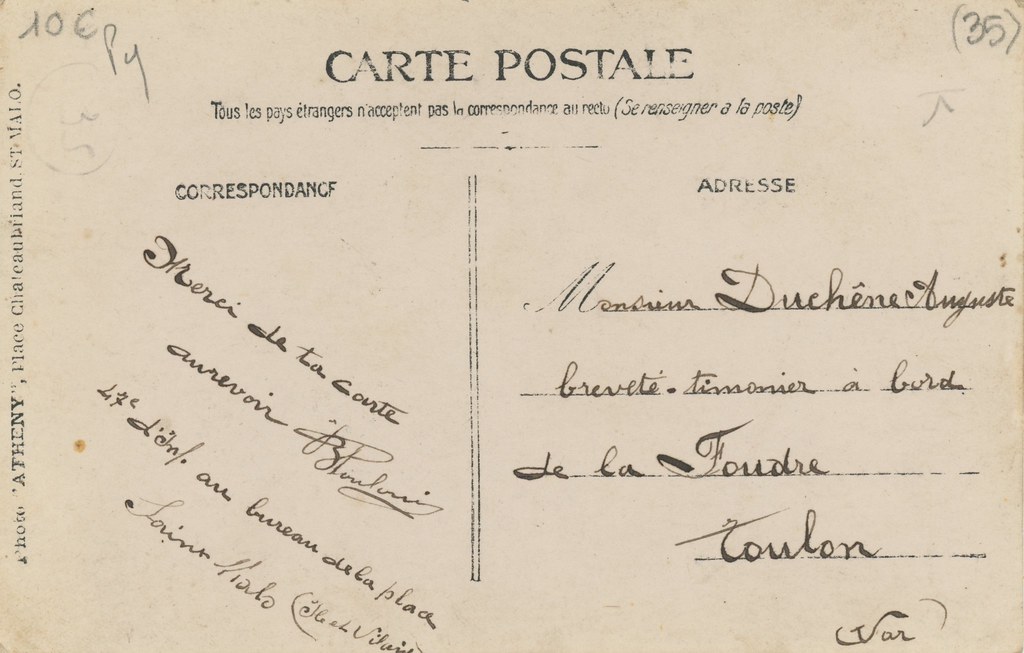 10€
(35)
CARTE POSTALE
Tous les pays étrangers n'acceptent pas la correspondance au recto (Se renseigner a la poste)
CORRESPONDANCE
ADRESSE
Photo "ATHENY", Place Chateaubriand, ST-MALO.
Merci de ta carte
aurevoir
47e d'Inf. au bureau de la place
Saint Malo (Ile et Vilaine
Monsieur Duchêne Auguste
breveté-timonier à bord
de la Foudre
Toulon
(Var)